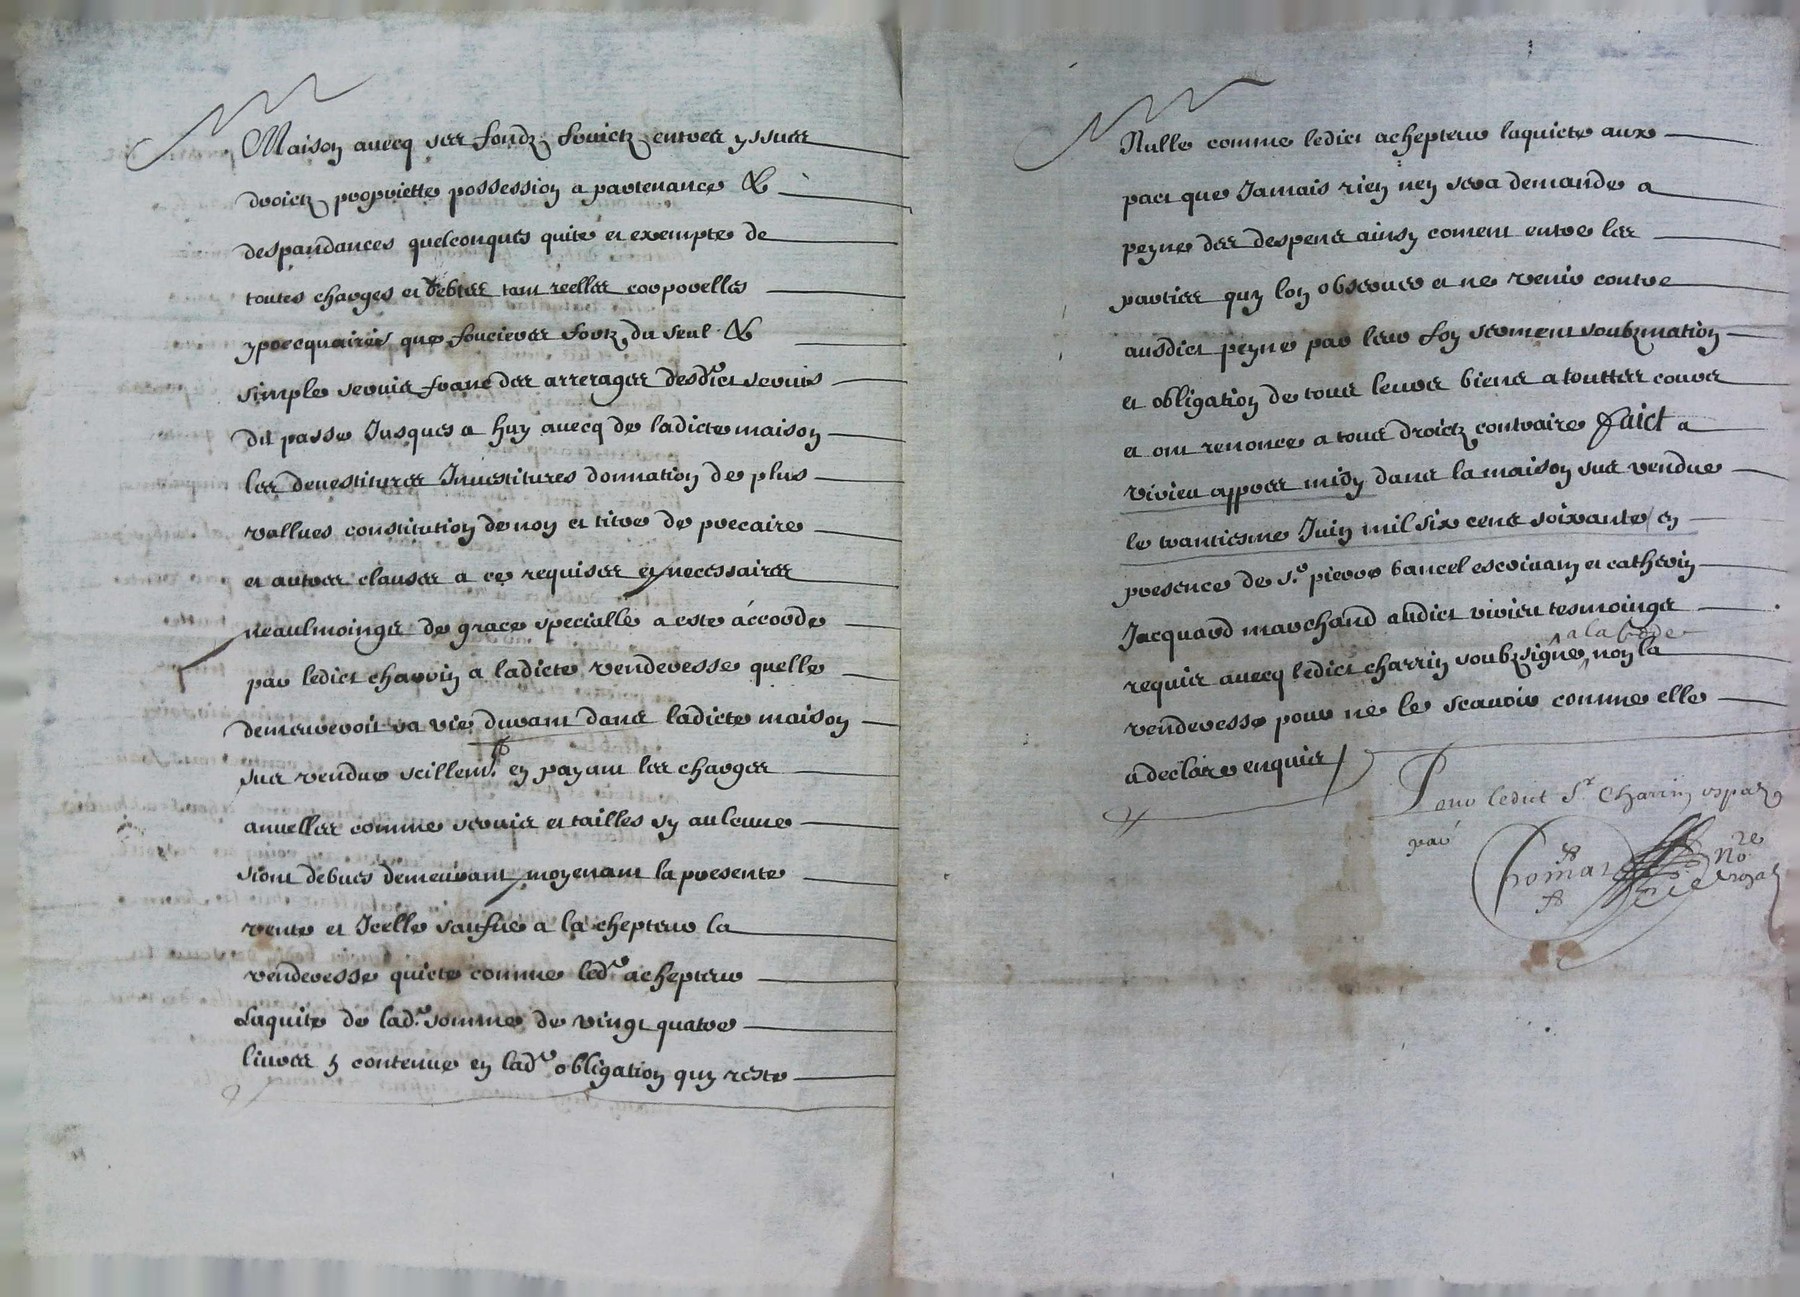 Maison avecq ses fondz fruictz entrees yssues
droictz proprietté possession apartenance &
despandances quelconques quite et exempte de
toutes charges et debtes tant reelles corporelles
ypoecquaires que foncieres fortz du seul &
simple servis franc des arrerages desd.ct servis
du passé Jusques a huy avecq de ladicte maison
les devestitures Investitures donnation de plus
vallues constitution de non et titre de precaire
et autres clauses a ce requises et necessaires
neaulmoinges de grace specialle a esté accordé
par ledict charrin a ladicte venderesse quelle
demeureroit sa vie durant dans ladicte maison
sus vendue seullem.t en payant les charges
anuelles comme servis et tailles sy aulcune
sont debues demeurant moyenant la presente
vente et Icelle saufue a la chepteur la
venderesse quicte comme led.t achepteur
Laquite de lad.te somme de vingt quatre
livres contenue en lad.te obligation quy reste
Nulle comme ledict achepteur laquicte aux
pact que Jamais rien nen sera demandé a
peyne des despens ainsy coment entre les
parties quy lon observer et ne venir contre
ausdict peyne par leur foy serment soubzmation
et obligation de tous leurs biens a touttes cours
et ont renoncé a tous droictz contraire ffaict a
virieu appres midy dans la maison sus vendue
le trantiesme Juin mil six cens soixante en
presence de s.r pierre bancel escrivain et catherin
Jacquard marchand audict virieu tesmoings
a la cede
requis avecq ledict charrin soubzsigné non la
venderesse pour ne le scavoir comme elle
a declaré enquis
Pour ledict S.r Charrin expedié
par
Thomas
n.re
royal